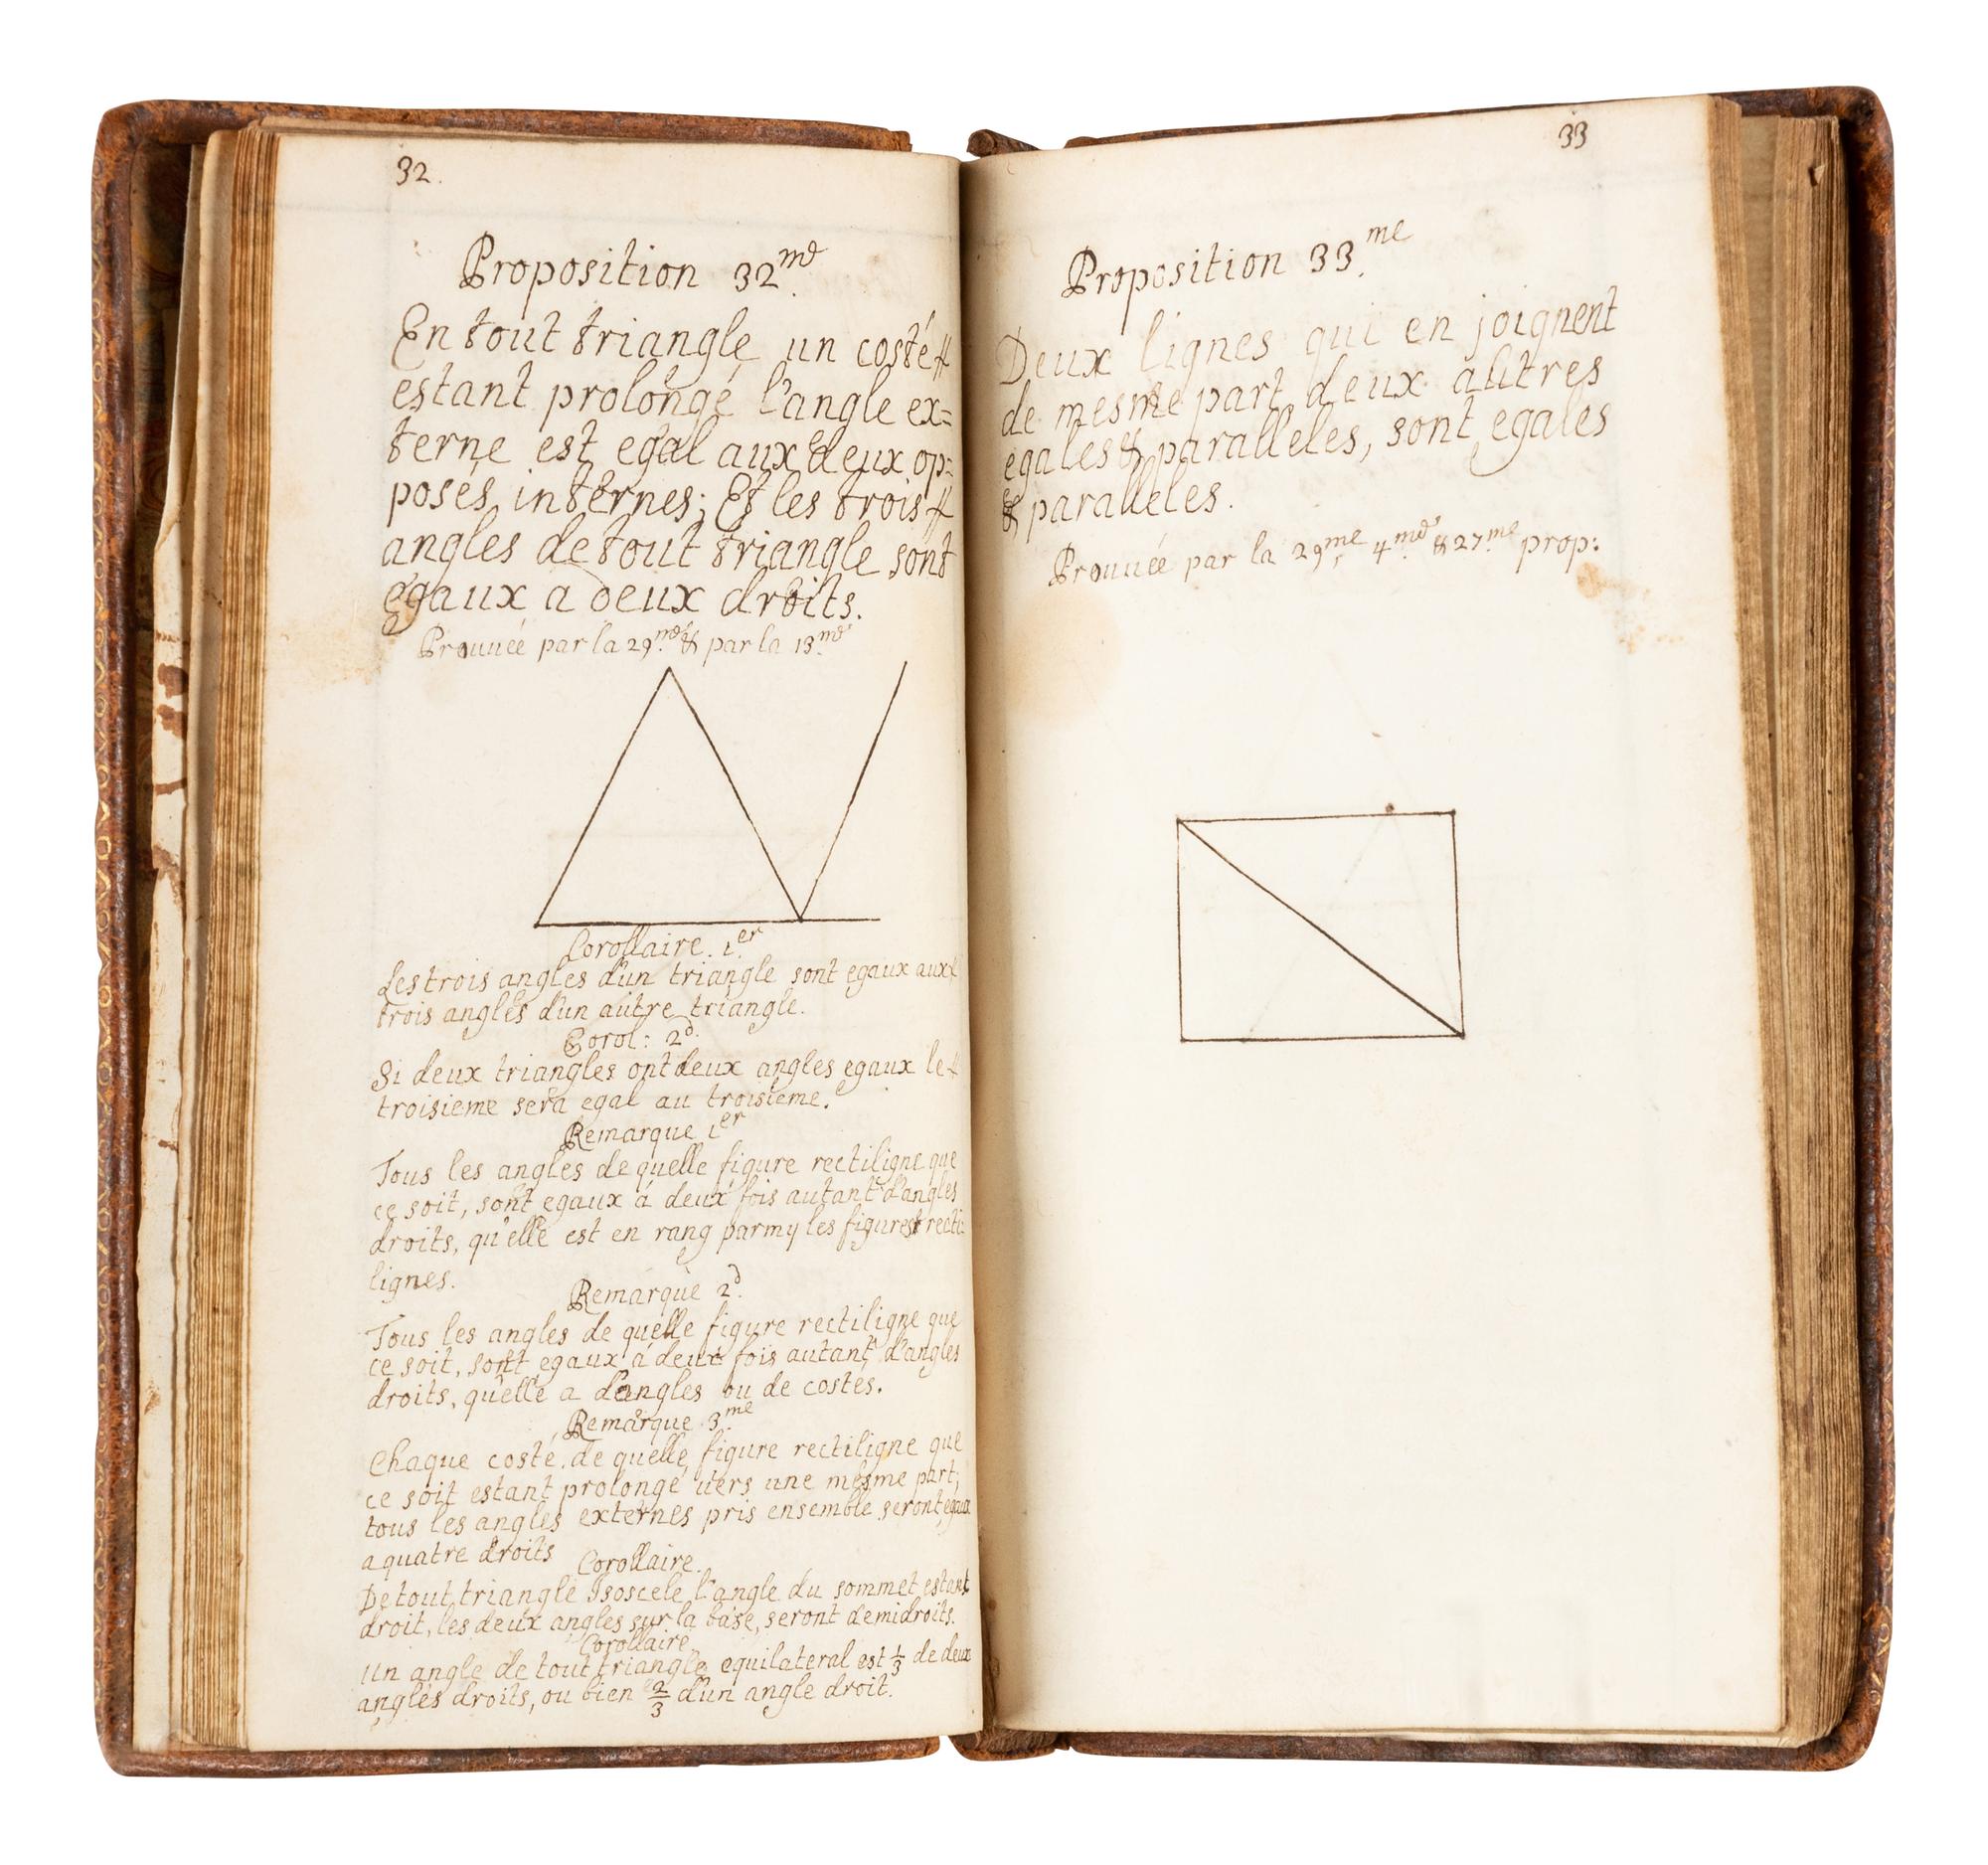 32.
Proposition 32.me
En tout triangle un costé
estant prolongé l'angle ex=
terne est egal aux deux op=
posés internes; Et les trois
angles de tout triangle sont
egaux a deux droits.
Prouuée par la 29.me & par la 13.me
Corollaire. 1.er
Les trois angles d'un triangle sont egaux aux
trois angles d'un autre triangle.
Corol: 2.d
Si deux triangles ont deux angles egaux le
troisieme sera egal au troisieme.
Remarque 1.er
Tous les angles de quelle figure rectiligne que
ce soit, sont egaux á deux fois autant d'angles
droits, qu'elle est en rang parmy les figures recti-
lignes.
Remarque 2.d
Tous les angles de quelle figure rectiligne que
ce soit, sont egaux á deux fois autant d'angles
droits, qu'elle a d'angles ou de costés.
Remarque 3.me
Chaque costé de quelle figure rectiligne que
ce soit estant prolongé uers une mesme part;
tous les angles externes pris ensemble seront egaux
a quatre droits
Corollaire.
De tout triangle Isoscele l'angle du sommet estant
droit, les deux angles sur la base, seront demidroits.
Corollaire
Un angle de tout triangle equilateral est 1/3 de deux
angles droits, ou bien 2/3 d'un angle droit.
33
Proposition 33.me
Deux lignes qui en joignent
de mesme part deux autres
egales & paralleles, sont egales
& paralleles.
Prouuée par la 29.me 4.me & 27.me prop: